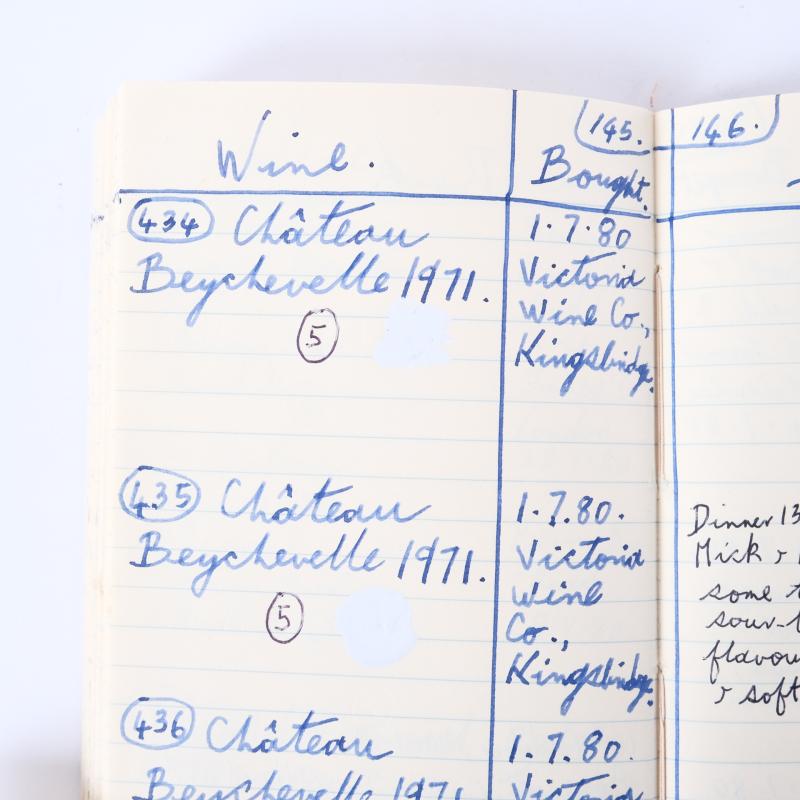 145.
Wine.
Bought.
434 Château
Beychevelle 1971.
5
1.7.80
Victoria
Wine Co.,
Kingsbridge.
435 Château
Beychevelle 1971.
5
1.7.80.
Victoria
Wine
Co.,
Kingsbridge.
436 Château
Beychevelle 1971.
1.7.80.
Victoria
146.
Dinner 13
Mick &
some
sour-
flavou
& soft